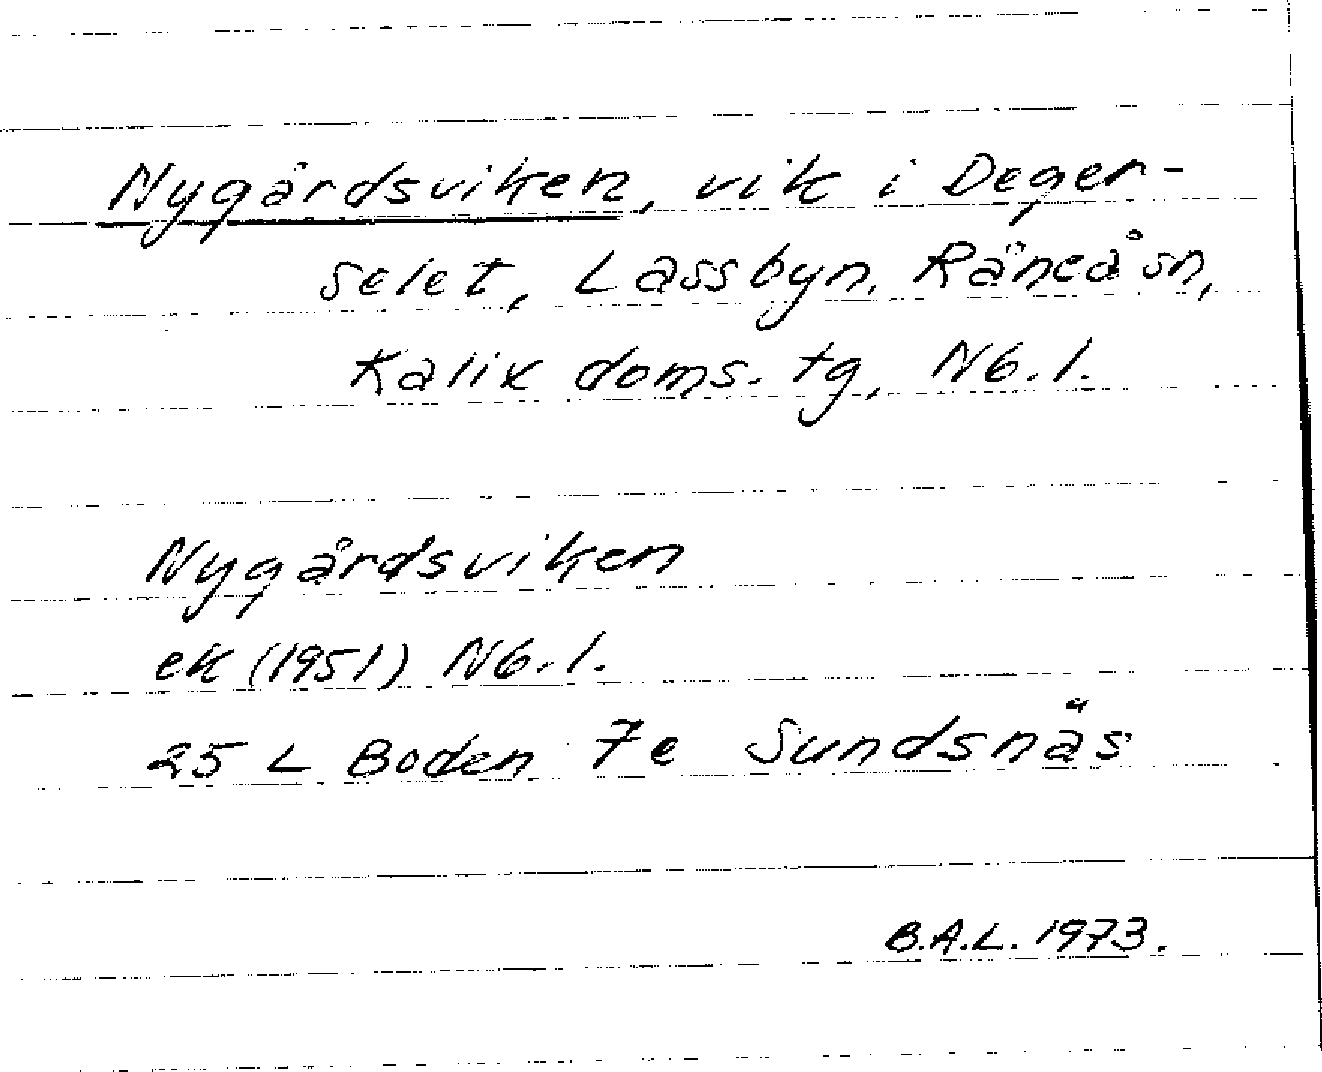 Nygårdsviken, vik i Deger-
selet, Lassbyn, Råneå sn,
Kalix doms. tg, Nb. l.
Nygårdsviken
ek (1951) Nb. l.
25 L Boden 7e Sundsnäs
B.A.L. 1973.